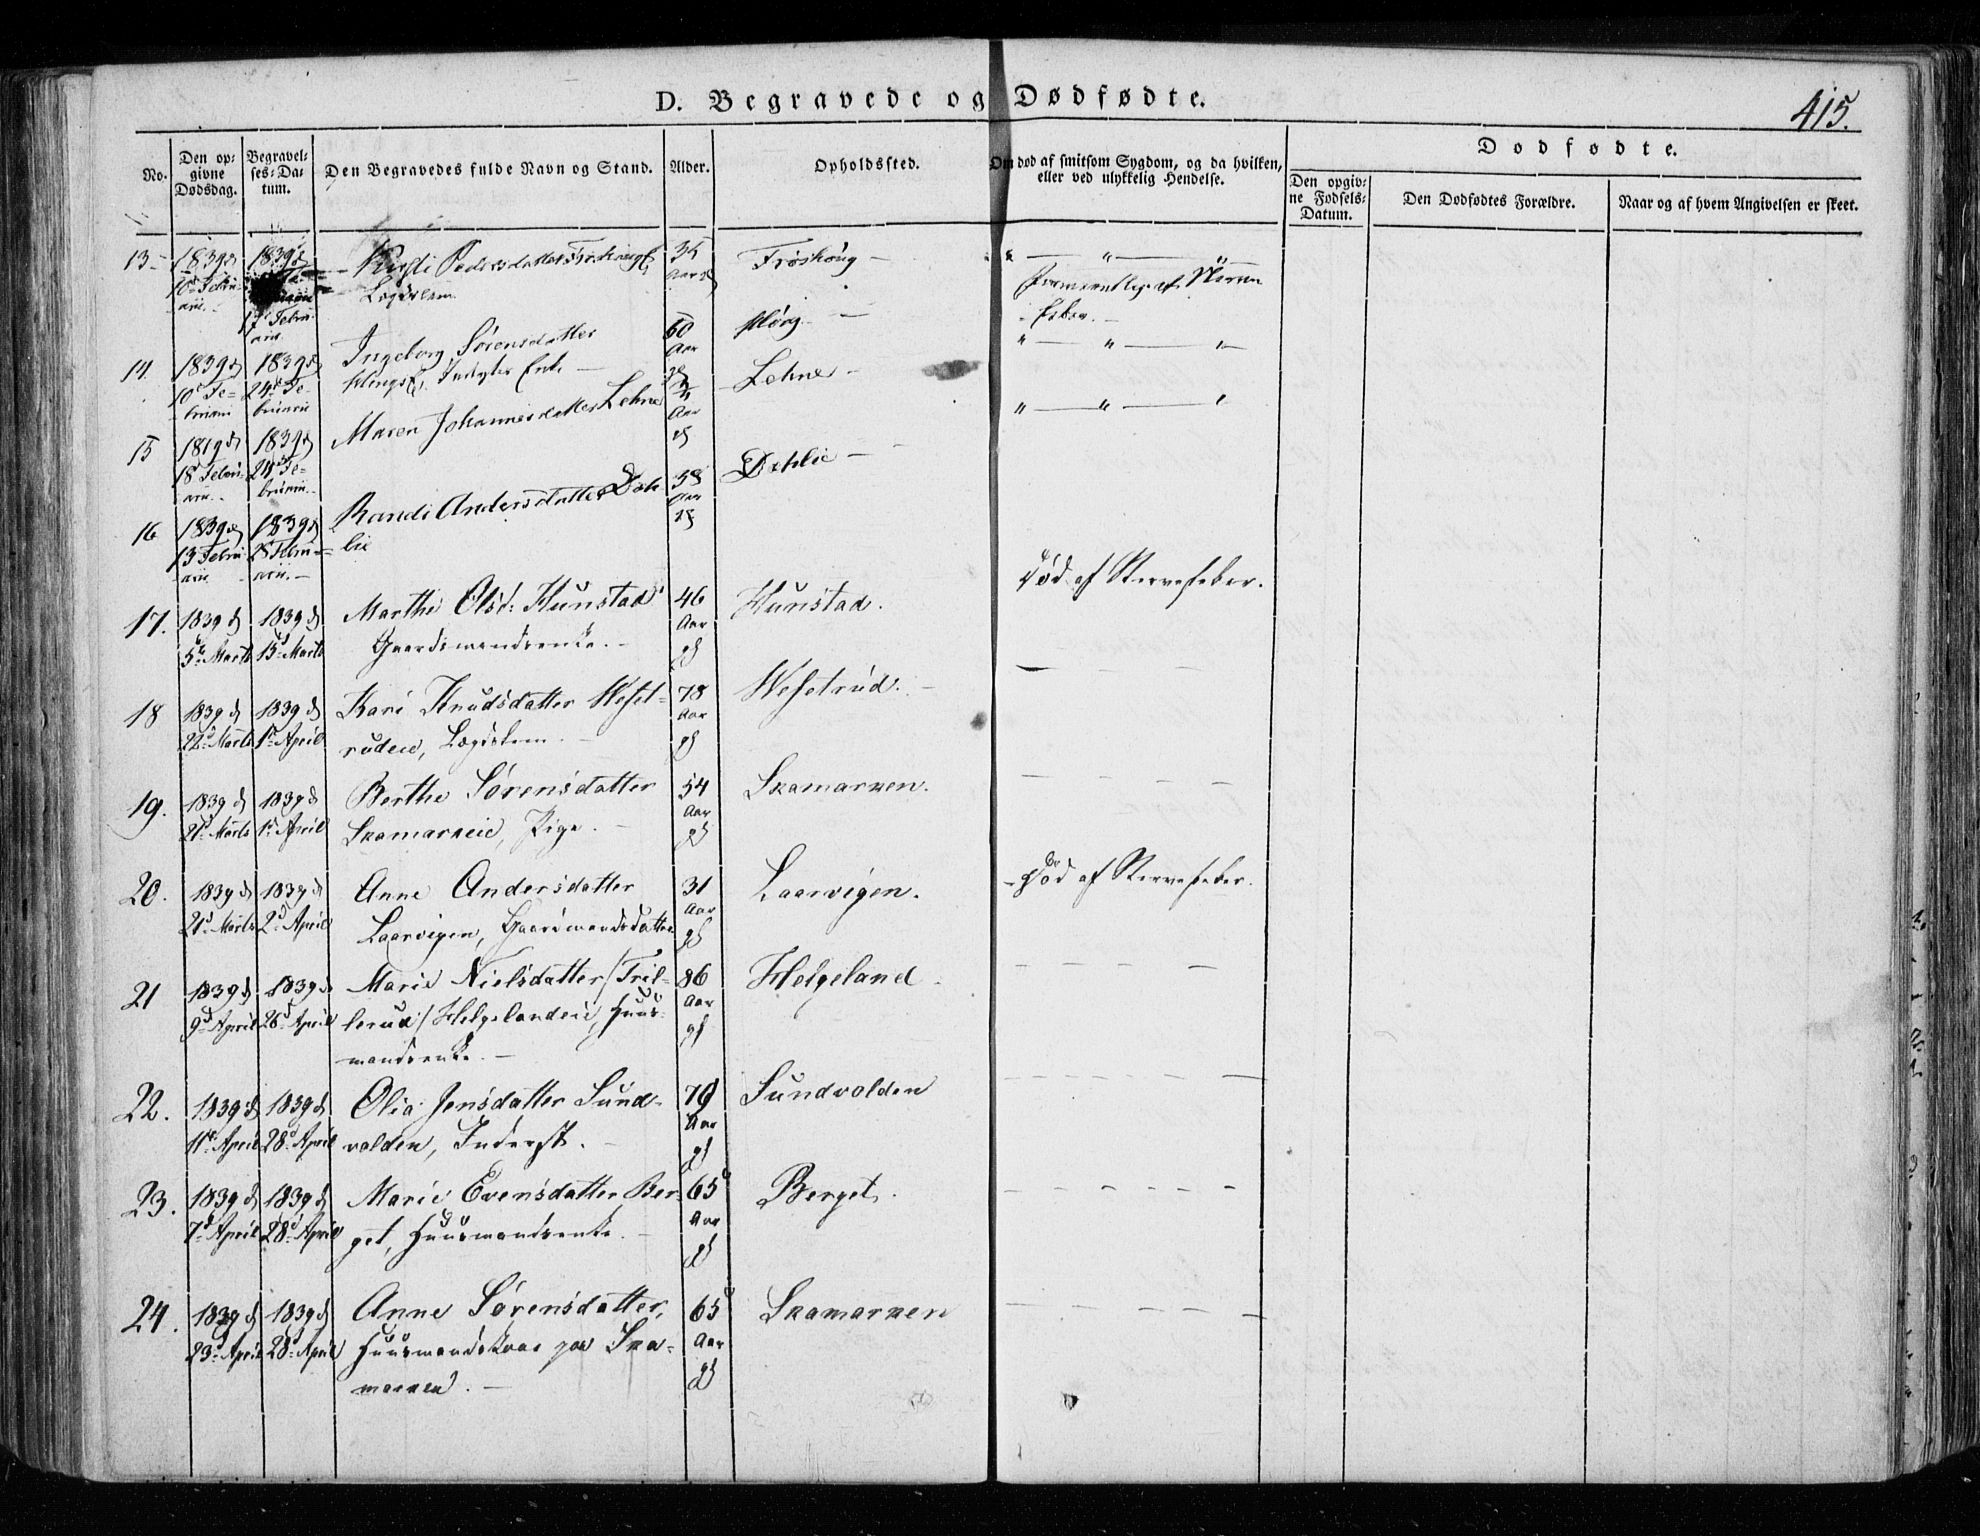 D. Begravede og Dødfødte.
415.
No.
Den op-
givne
Dødsdag.
Begravel-
ses-Da-
tum.
Den Begravedes fulde Navn og Stand.
Alder.
Opholdssted.
Om død af smitsom Sygdom, og da hvilken,
eller ved ulykkelig Hendelse.
Dødfødte.
Den opgiv-
ne Fødsels-
Datum.
Den Dødfødtes Forældre.
Naar og af hvem Angivelsen er skeet.
13
1839 d
10 Febru-
arii.
1839 d
17 Febru-
arii.
Pedersdatter
Lægdslem
35
Aar
Frøshöug
14
1839 d
10 Fe-
bruarii
1839 d
24 Fe-
bruarii
Ingeborg Sørensdatter
Enke
60
Aar
15
1819 d
18 Febru-
arii.
1839 d
24 Fe-
bruarii.
Maren Johannesdatter Lehne
Aar
Lehne
16
1839 d
13 Febru-
arii
1839 d
28 Febru-
arii.
Randi Andersdatter Dæh-
lie
38
Aar
Dæhlie
17.
1839 d
5te Marts
1839 d
15 Marts
Marthe Olsd: Hunstad
Gaardmandsenke.
46
Aar
gl
Hunstad.
Død af Nervefeber.
18
1839 d
22d Marts
1839 d
1ste April
Kari Knudsdatter Weset-
rudeie, Lægdslem.
78
Aar
gl
Wesetrud.
19.
1839 d
21d Marts
1839 d
1ste April
Berthe Sørensdatter
Skamarkeie, Pige.
54
Aar
gl
Skamarken.
20.
1839 d
21d Marts
1839 d
2d April
Anne Andersdatter
Laarvigen, Gaardmandsdatter
31
Aar
gl
Laarvigen.
Død af Nervefeber.
21
1839 d
9d April
1839 d
28d April
Marie Nielsdatter /Tril-
lerud/ Helgelandeie, Huus-
mandsenke.
86
Aar
gl
Helgeland
22.
1839 d
11te April
1839 d
28d April
Olia Jensdatter Sund-
volden, Inderst.
79
Aar
gl
Sundvolden
23.
1839 d
7d April
1839 d
28d April
Marie Evensdatter Ber-
get, Huusmandsenke.
65
Aar
gl
Berget.
24.
1839 d
23d April
1839 d
28d April
Anne Sørensdatter,
Huusmandskone paa Ska-
marken.
65
Aar
gl
Skamarken